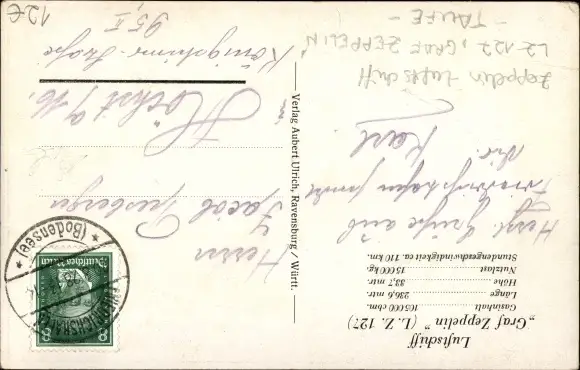 Luftschiff
„Graf Zeppelin" (L. Z. 127)
Gasinhalt 105 000 cbm.
Länge 236,6 mtr
Höhe 33,7 mtr
Nutzlast 15 000 kg
Stundengeschwindigkeit ca. 110 km.
Herzl. Grüße aus
Friedrichshafen sendet
Karl
Zeppelin-Luftschiff
LZ 127 "GRAF ZEPPELIN"
- TAUFE -
Verlag Aubert Ulrich, Ravensburg / Württ.
FRIEDRICHSHAFEN
* (Bodensee) *
Deutsches Reich
8 8
Herrn
Jacob
Höchst a/M.
Königsteiner-Straße
95, II
12€